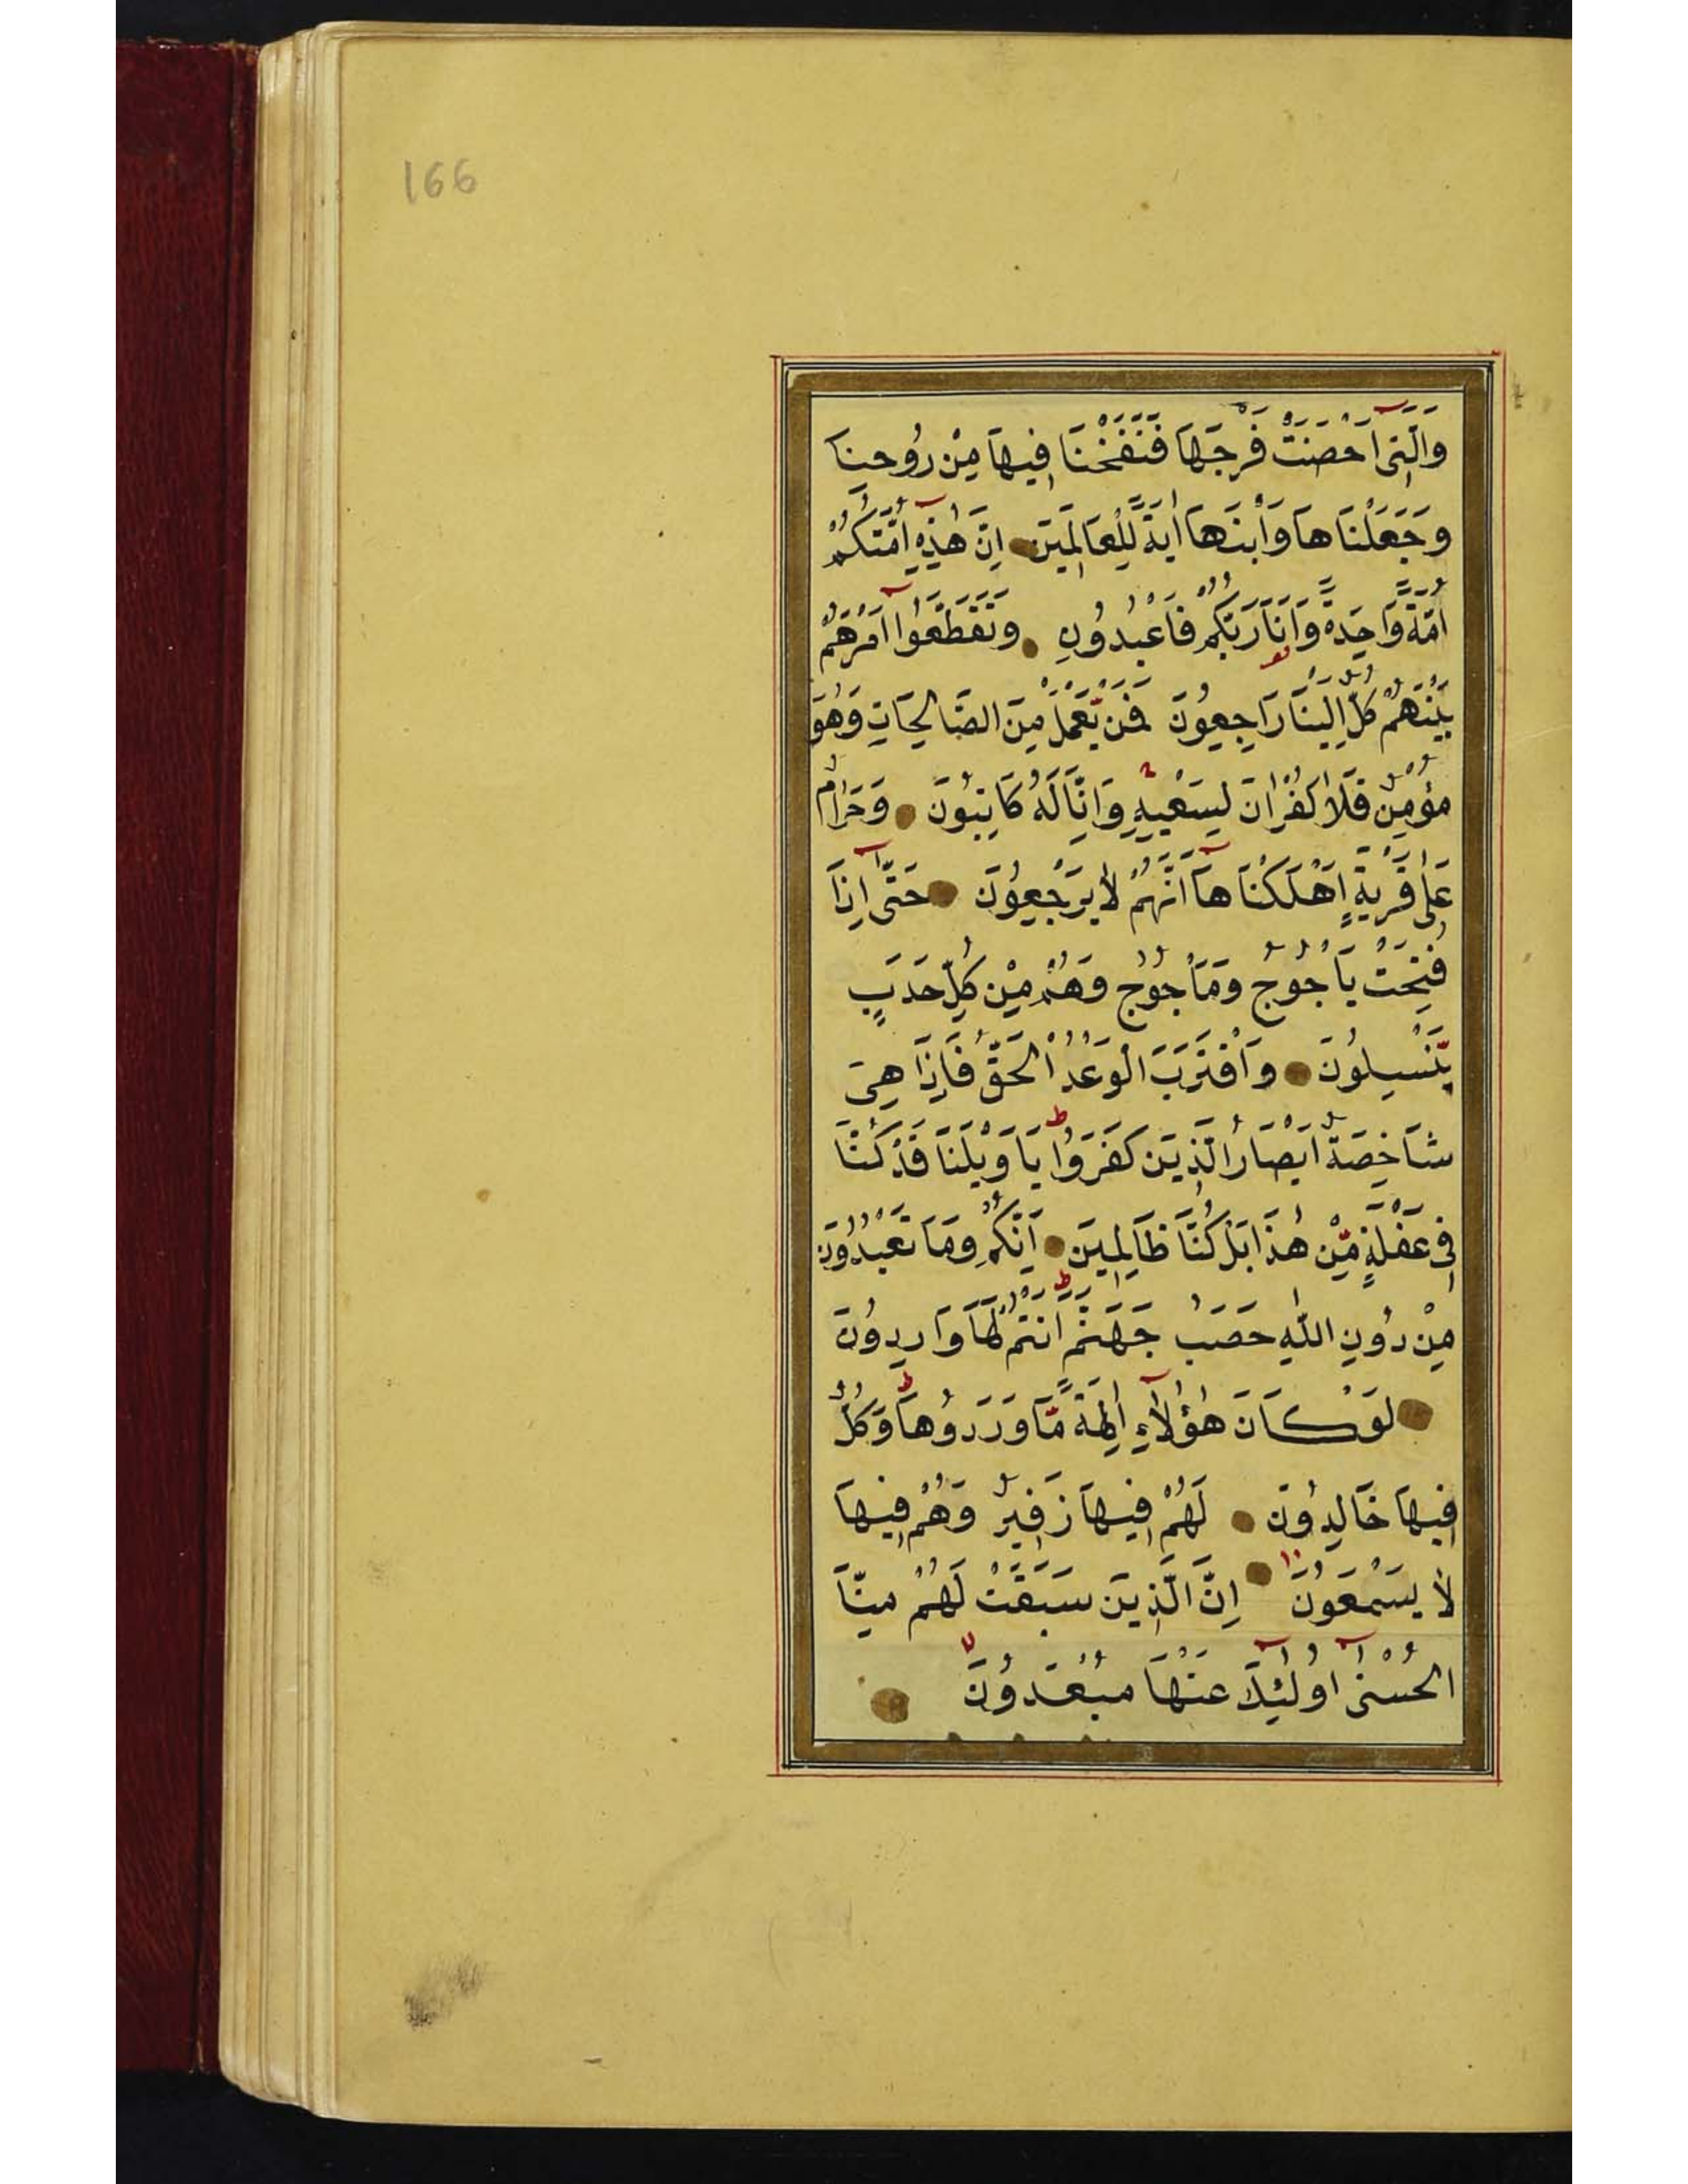 166
وَالَّتِي آحْصَنَتْ فَرْجَهَا فَنَفَخْنَا فِيهَا مِنْ رُوحِنَا
وَجَعَلْنَاهَا وَابْنَهَا اٰيَةً لِّلْعَالَمِينَ اِنَّ هٰذِهِ اُمَّتُكُمْ
اُمَّةً وَّاحِدَةً وَّاَنَا رَبُّكُمْ فَاعْبُدُونِ وَتَقَطَّعُوا اَمْرَهُمْ
بَيْنَهُمْ كُلٌّ اِلَيْنَا رَاجِعُونَ فَمَنْ يَّعْمَلْ مِنَ الصَّالِحَاتِ وَهُوَ
مُؤْمِنٌ فَلَا كُفْرَانَ لِسَعْيِهِ وَاِنَّا لَهُ كَاتِبُونَ وَحَرَامٌ
عَلٰى قَرْيَةٍ اَهْلَكْنَاهَآ اَنَّهُمْ لَا يَرْجِعُونَ حَتّٰى اِذَا
فُتِحَتْ يَاْجُوجُ وَمَاْجُوجُ وَهُمْ مِنْ كُلِّ حَدَبٍ
يَّنْسِلُونَ وَاقْتَرَبَ الْوَعْدُ الْحَقُّ فَاِذَا هِىَ
شَاخِصَةٌ اَبْصَارُ الَّذِينَ كَفَرُوا يَا وَيْلَنَا قَدْ كُنَّا
فِى غَفْلَةٍ مِّنْ هٰذَا بَلْ كُنَّا ظَالِمِينَ اِنَّكُمْ وَمَا تَعْبُدُونَ
مِنْ دُونِ اللّٰهِ حَصَبُ جَهَنَّمَ اَنْتُمْ لَهَا وَارِدُونَ
لَوْ كَانَ هٰؤُلَآءِ اٰلِهَةً مَّا وَرَدُوهَا وَكُلٌّ
فِيهَا خَالِدُونَ لَهُمْ فِيهَا زَفِيرٌ وَهُمْ فِيهَا
لَا يَسْمَعُونَ اِنَّ الَّذِينَ سَبَقَتْ لَهُمْ مِنَّا
الْحُسْنٰى اُولٰٓئِكَ عَنْهَا مُبْعَدُونَ